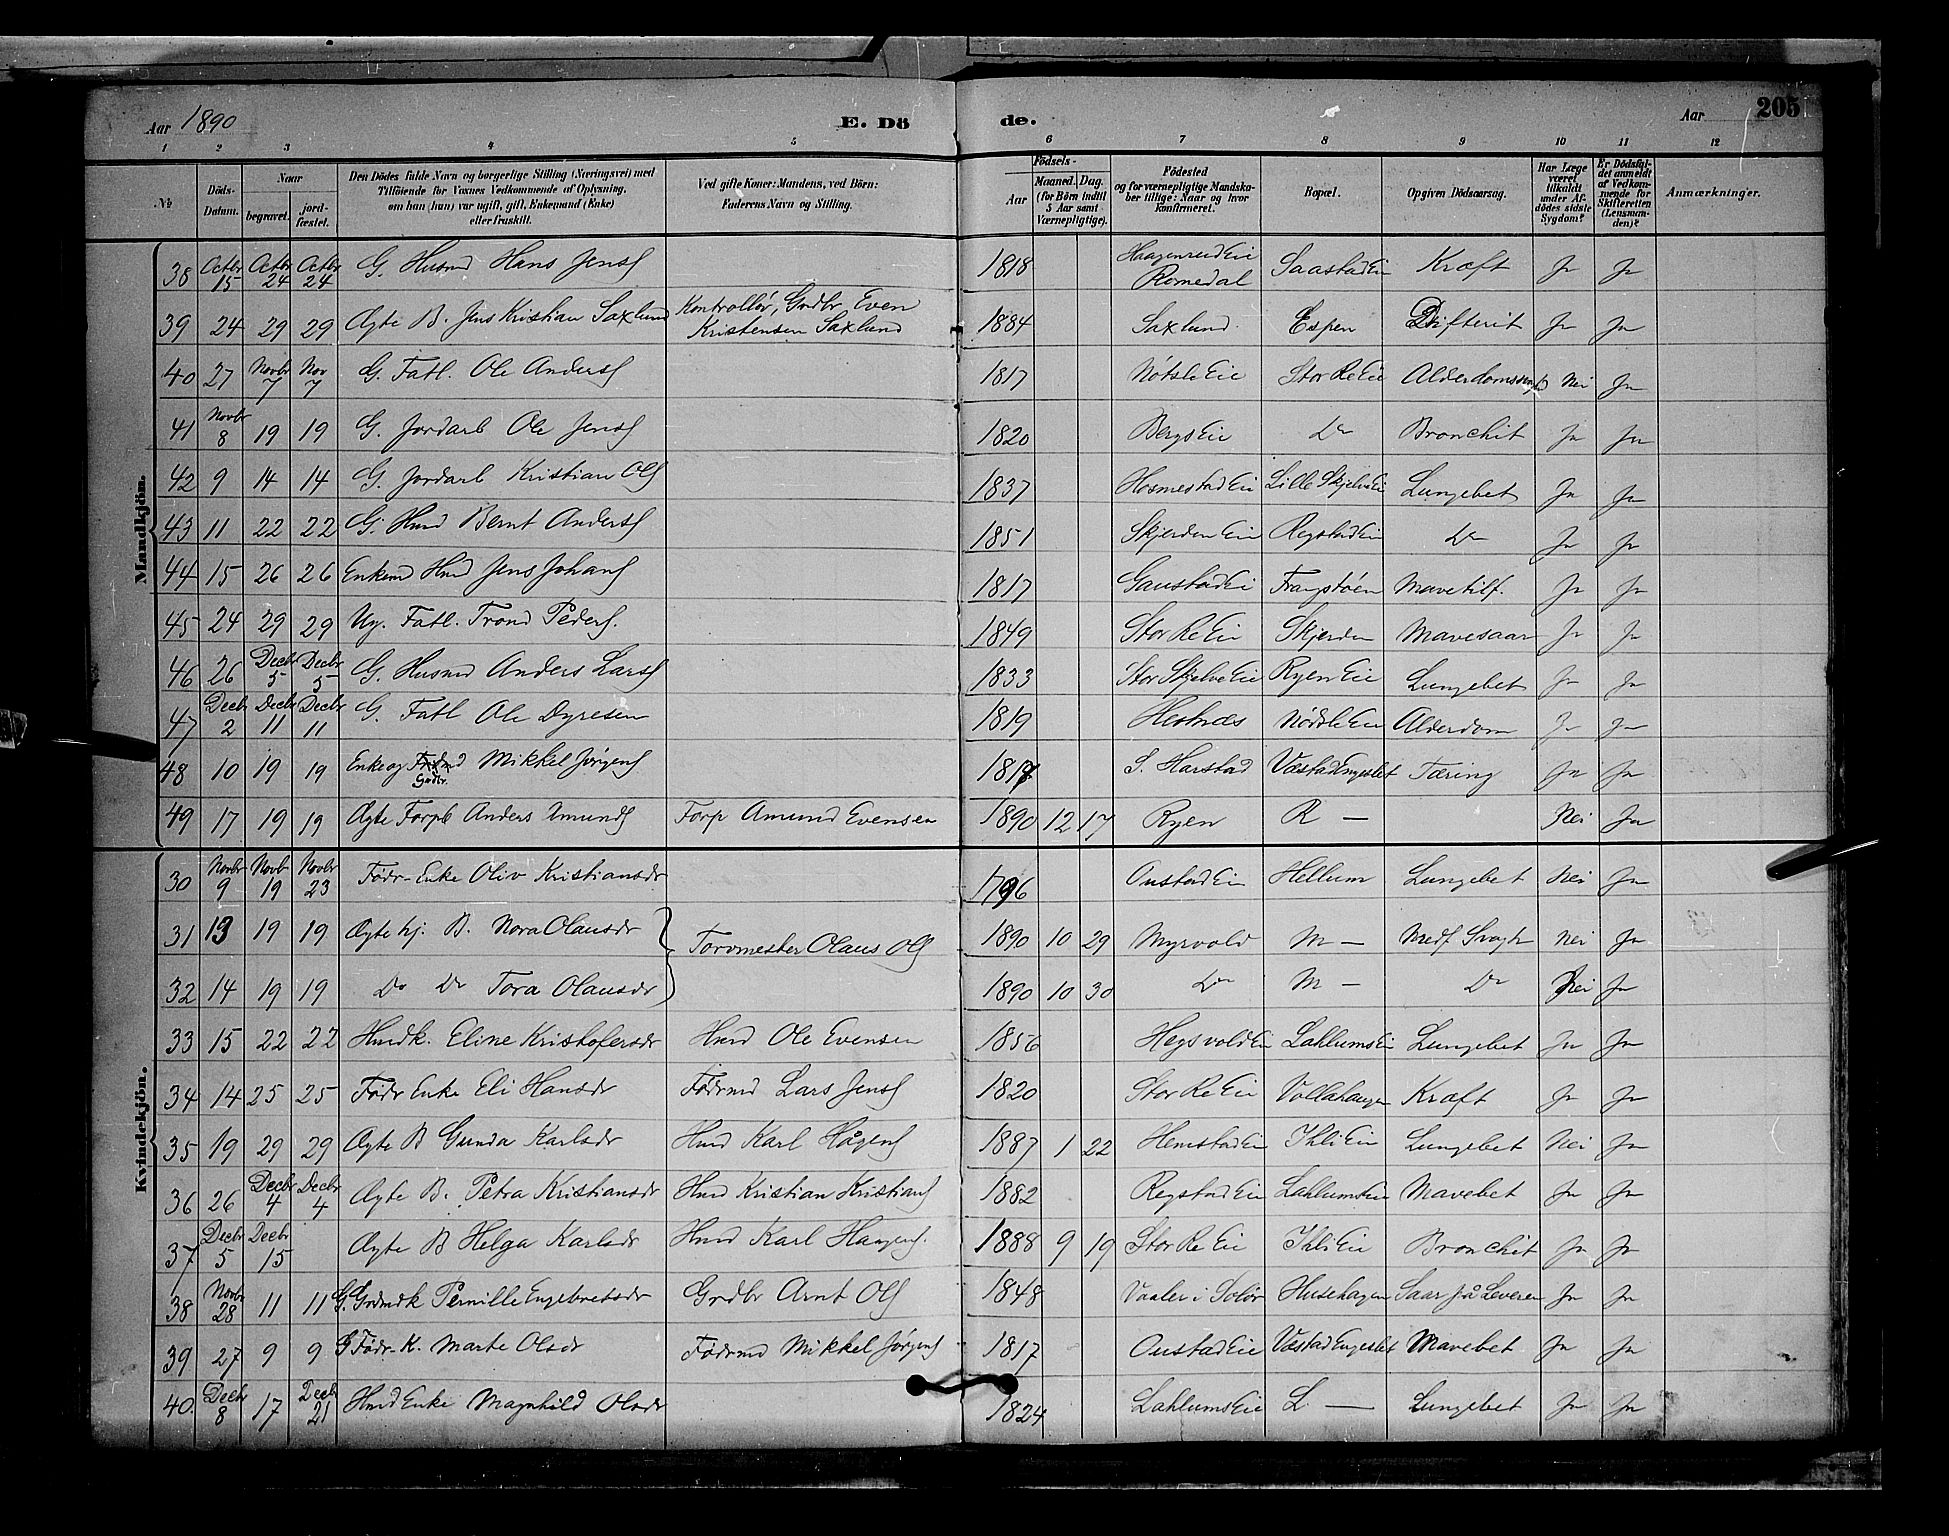 Aar 1890 E. Dö de. Aar 205
1 2 3 4 5 6 7 8 9 10 11 12
№
Döds-Datum.
Naar
begravet.
jord-fæstet.
Den Dödes fulde Navn og borgerlige Stilling (Næringsvei) med
Tilföiende for Voxnes Vedkommende af Oplysning,
om han (hun) var ugift, gift, Enkemand (Enke)
eller fraskilt.
Ved gifte Koner: Mandens, ved Börn:
Faderens Navn og Stilling.
Födsels-
Aar
Maaned. Dag.
(for Börn indtil
5 Aar samt
Værnepligtige).
Födested
og for værnepligtige Mandska-
ber tillige: Naar og hvor
konfirmeret.
Bopæl.
Opgiven Dödsaarsag.
Har Læge
været
tilkaldt
under Af-
dödes sidste
Sygdom?
Er Dödsfal-
det anmeldt
af Vedkom-
mende for
Skifteretten
(Lensman-
den)?
Anmærkninger.
Mandkjön.
38 Octbr 15 Octbr 24 Octbr 24 G. Husmd Hans Jens 1818 Haagenrud Eie Romedal Saastad Ei Kræft Ja Ja
39 24 29 29 Ægte B. Jens Kristian Saxlund Kontrollør, Grdbr Even Kristensen Saxlund 1884 Saxlund Espen Difterit Ja Ja
40 27 Novbr 7 Nov 7 G. Fatl. Ole Anders 1817 Nøtsle Eie Stor Re Eie Alderdomssvaghd Nei Ja
41 Novbr 8 19 19 G. Jordarb Ole Jens 1820 Bergs Eie Do Bronchit Ja Ja
42 9 14 14 G. Jordarb Kristian Ols 1837 Hosmestad Eie Lille Skjelve Ei Lungebet Ja Ja
43 11 22 22 G. Hmd Bernt Anders 1851 Skjerden Eie Rogstad Ei Do Ja Ja
44 15 26 26 Enkemd Hmd Jens Johans 1817 Gaustad Ei Frangstøen Mavetilf. Ja Ja
45 24 29 29 Ug. Fatl. Trond Peders. 1849 Stor Re Eie Skjerden Mavesaar Ja Ja
46 26 Decbr 5 Decbr 5 G. Husmd Anders Lars 1833 Stor Skjelve Eie Ryen Eie Lungebet Ja Ja
47 Decbr 2 Decbr 11 Decbr 11 G. Fatl Ole Dyresen 1819 Hestnæs Nødsle Eie Alderdom Ja Ja
48 10 19 19 Enke og Grdbr. Mikkel Jørgens 1817 S. Harstad Væstad Engeslet Tæring Ja Ja
49 17 19 19 Ægte Forpb Anders Amunds Forp Amund Evensen 1890 12 17 Ryen R — Nei Ja
Kvindekjön.
30 Novbr 9 Novb 19 Novbr 23 Fødr-Enke Oliv Kristiansdr 1796 Onstad Ei Hellum Lungebet Nei Ja
31 13 19 19 Ægte hj. B. Nora Olausdr Torvmester Olaus Ols 1890 10 29 Myrvold M — Medf. Svagh Nei Ja
32 14 19 19 Do Do Tora Olausdr 1890 10 30 Do M — Do Nei Ja
33 15 22 22 Hmdk. Eline Kristofersdr Hmd Ole Evensen 1856 Hegsvold Ei Lahlums Ei Lungebet Ja Ja
34 14 25 25 Fødr Enke Eli Hansdr Fødrmd Lars Jens 1820 Stor Re Eie Vollahaugen Kræft Ja Ja
35 19 29 29 Ægte B Gunda Karlsdr Hmd Karl Hågens 1887 1 22 Hemstad Ei Ihli Eie Lungebet Nei Ja
36 26 Decbr 4 Decbr 4 Ægte B. Petra Kristiansdr Hmd Kristian Kristians 1882 Rogstad Eie Lahlums Eie Mavebet Ja Ja
37 Decbr 5 Decbr 15 Ægte B Helga Karlsdr Hmd Karl Haagens. 1888 9 19 Stor Re Eie Ihli Eie Bronchit Ja Ja
38 Novbr 28 11 11 G. Grdmdk Pernille Engebretsdr Grdbr Arnt Ols 1848 Vaaler i Solør Husehagen Saar på Leveren Ja Ja
39 27 9 9 G Fødr-K. Marte Olsdr Fødrmd Mikkel Jørgens 1817 Onstad Eie Væstad Engeslet Mavebet Ja Ja
40. Decbr 8 17 Decbr 21 Hmd Enke Magnhild Olsdr 1824 Lahlums Eie L. — Lungebet Ja Ja